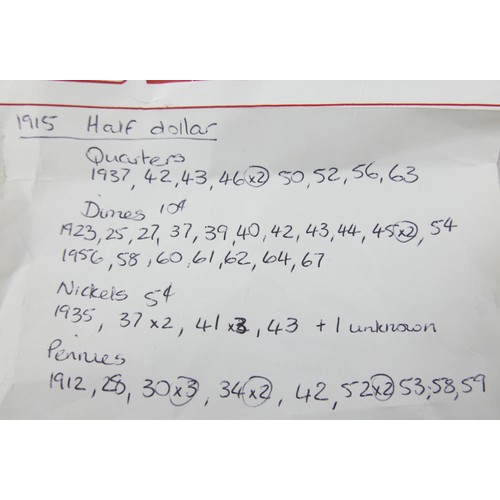 1915 Half dollar
Quarters
1937, 42, 43, 46 x2 50, 52, 56, 63
Dimes 10¢
1923, 25, 27, 37, 39, 40, 42, 43, 44, 45 x2, 54
1956, 58, 60, 61, 62, 64, 67
Nickels 5¢
1935, 37 x2, 41 x3, 43 + 1 unknown
Pennies
1912, 28, 30 x3, 34 x2, 42, 52 x2 53, 58, 59